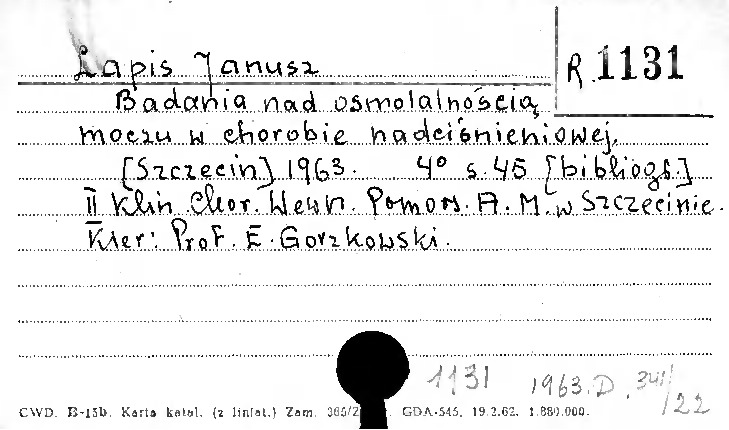 Łapis Janusz
R.1131
Badania nad osmolalnością
moczu w chorobie nadciśnieniowej.
[Szczecin] 1963. 4° s. 45 [bibliogr.]
II Klin. Chor. Wewn. Pomors. A. M. w Szczecinie.
Kier: Prof. E. Gorzkowski.
1131 1963.D.341/22
CWD. B-15b. Karta katal. (z liniat.) Zam. GDA-545. 19.2.62. 1.880.000.